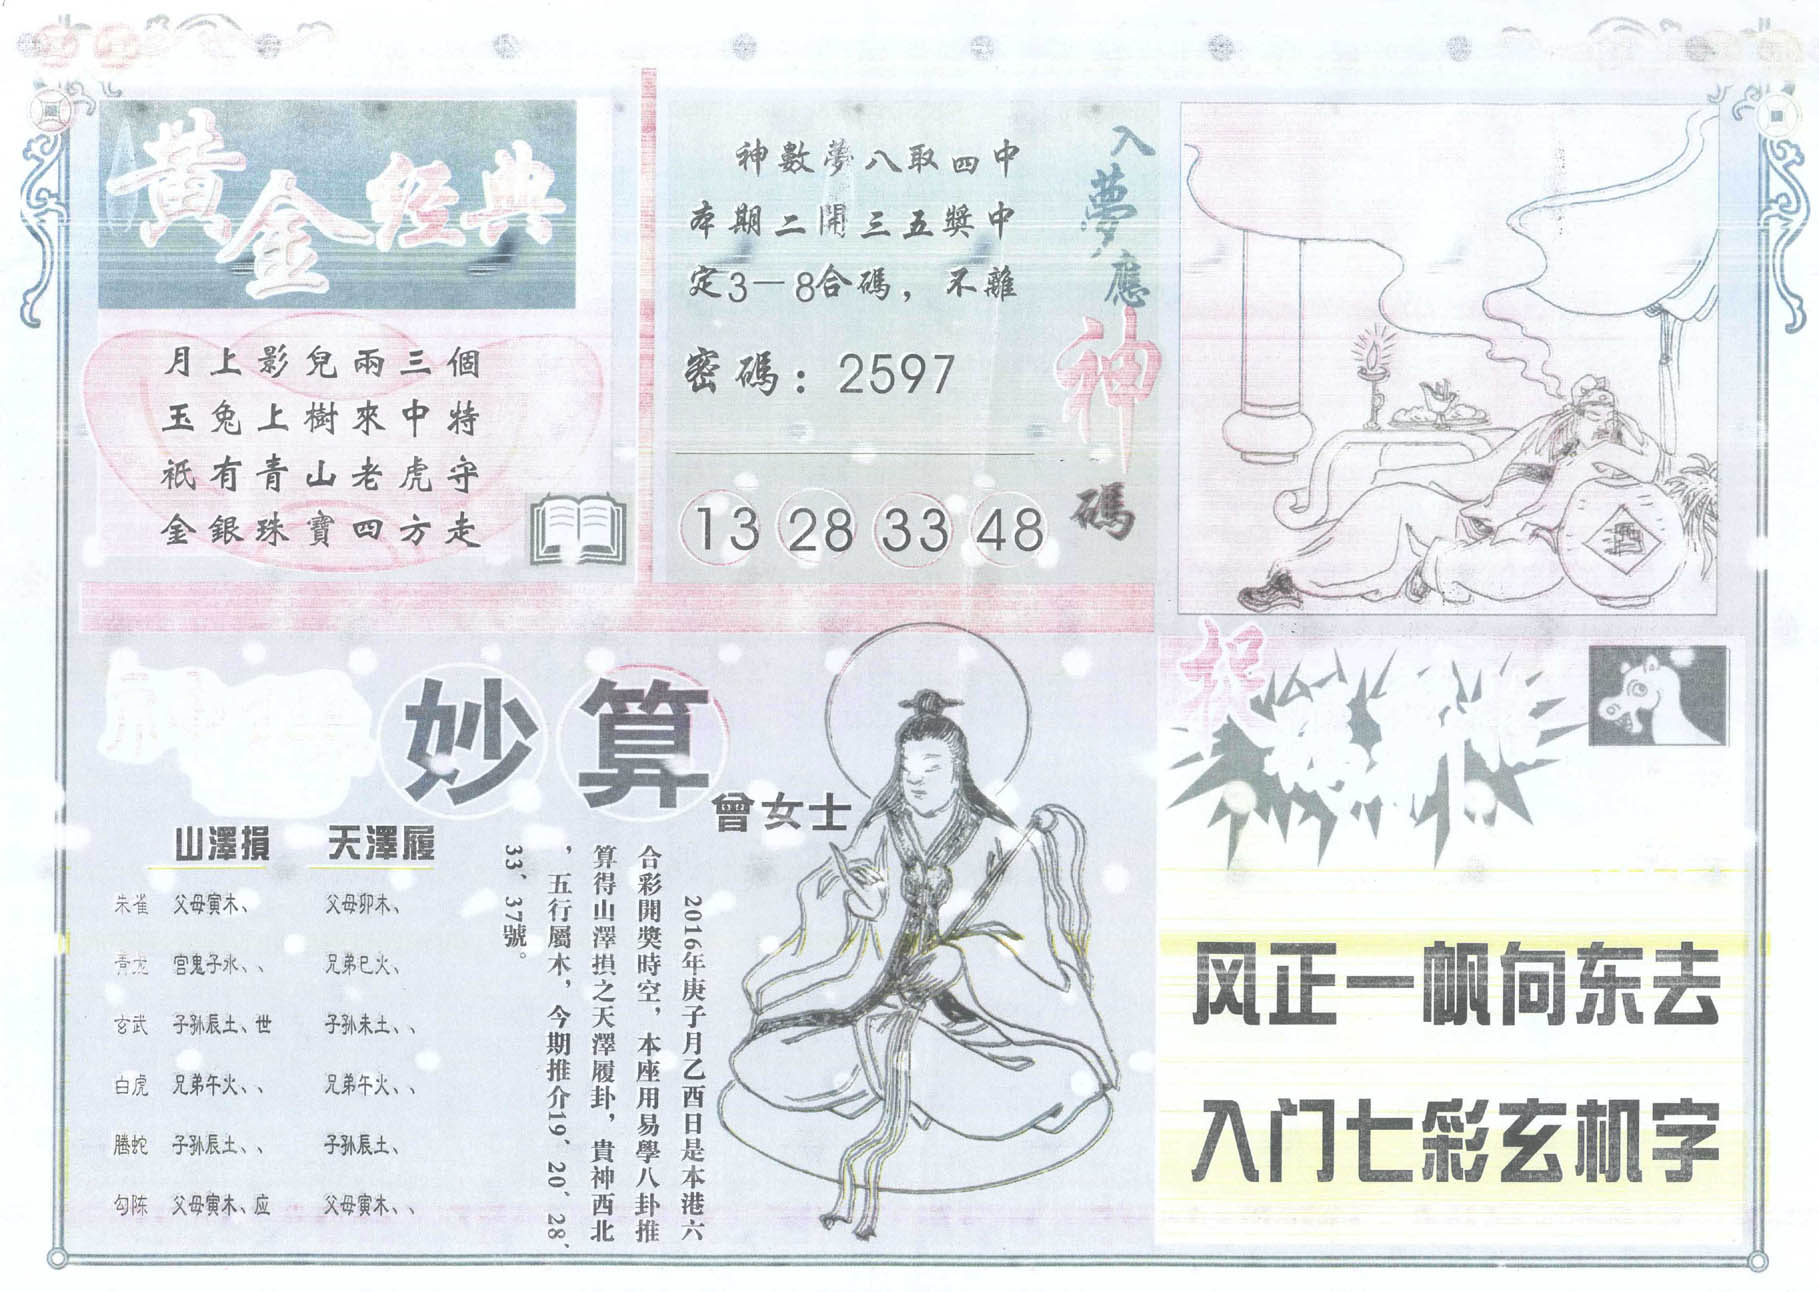 黃金經典
月上影兒兩三個
玉兔上樹來中特
祇有青山老虎守
金銀珠寶四方走
入夢應神碼
神數夢八取四中
本期二開三五獎中
定3－8合碼，不離
密碼：2597
13 28 33 48
妙算
曾女士
山澤損 天澤履
朱雀 父母寅木、 父母卯木、
青龙 官鬼子水、、 兄弟巳火、
玄武 子孙辰土、世 子孙未土、、
白虎 兄弟午火、、 兄弟午火、、
腾蛇 子孙辰土、、 子孙辰土、
勾陈 父母寅木、应 父母寅木、、
2016年庚子月乙酉日是本港六
合彩開獎時空，本座用易學八卦推
算得山澤損之天澤履卦，貴神西北
，五行屬木，今期推介19、20、28、
33、37號。
风正一帆向东去
入门七彩玄机字